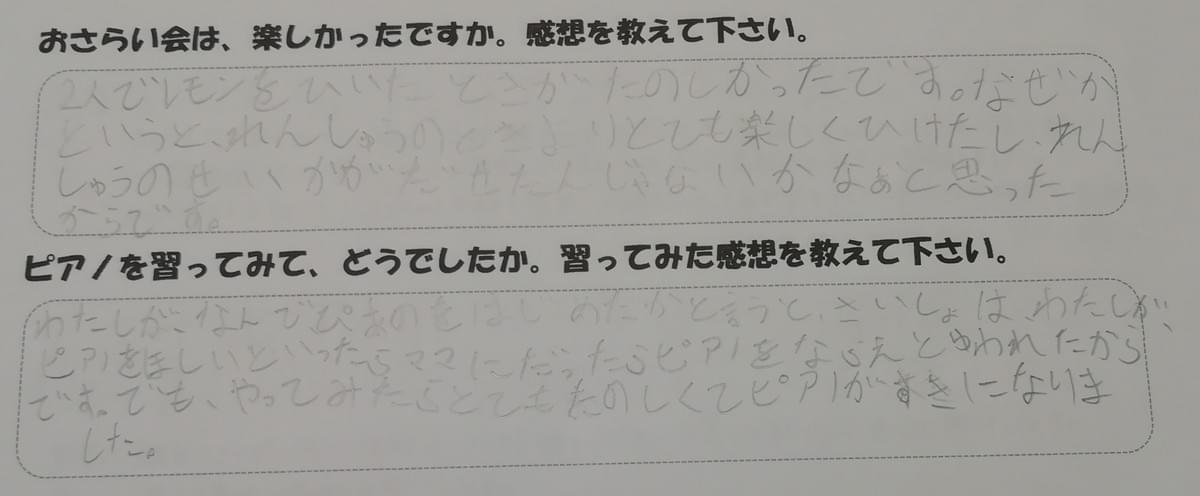 おさらい会は、楽しかったですか。感想を教えて下さい。
2人でレモンをひいたときがたのしかったです。なぜか
というと、れんしゅうのときよりとても楽しくひけたし、れん
しゅうのせいかがだせたんじゃないかなぁと思った
からです。
ピアノを習ってみて、どうでしたか。習ってみた感想を教えて下さい。
わたしが、なんでぴあのをはじめたかと言うと、さいしょは、わたしが、
ピアノをほしいといったらママにだったらピアノをならえとゆわれたから
です。でも、やってみたらとてもたのしくてピアノがすきになりま
した。